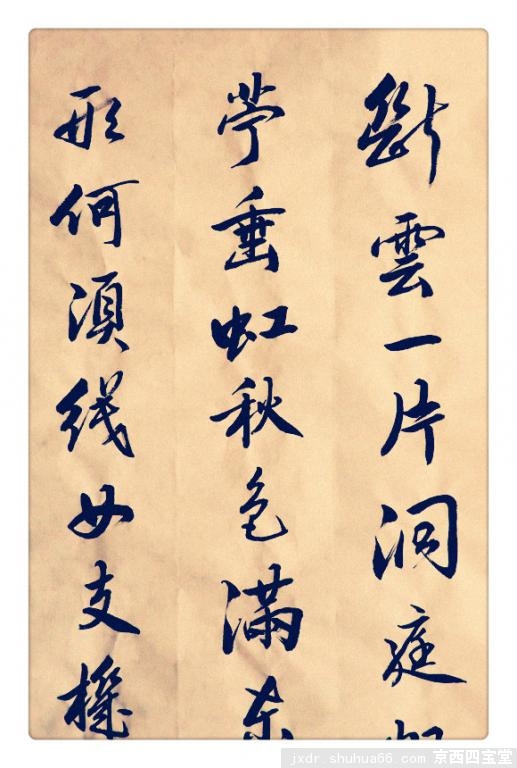 斷雲一片洞庭
苧垂虹秋色滿東
形何須織女支機
jxdr.shuhua66.com 京西四宝堂